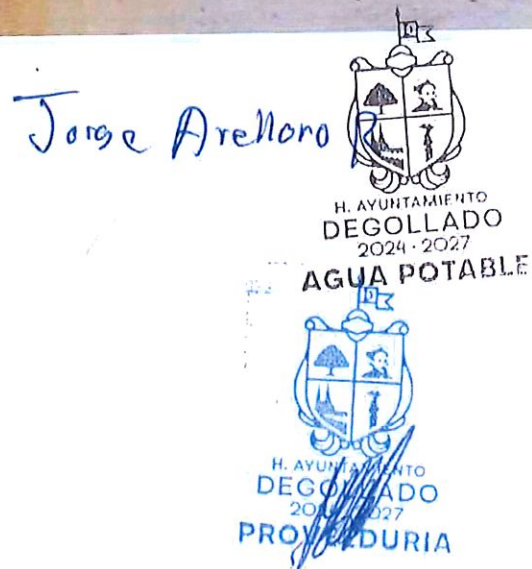 Jorge Arellano R
H. AYUNTAMIENTO
DEGOLLADO
2024 - 2027
AGUA POTABLE
H. AYUNTAMIENTO
DEGOLLADO
2024 - 2027
PROVEEDURIA